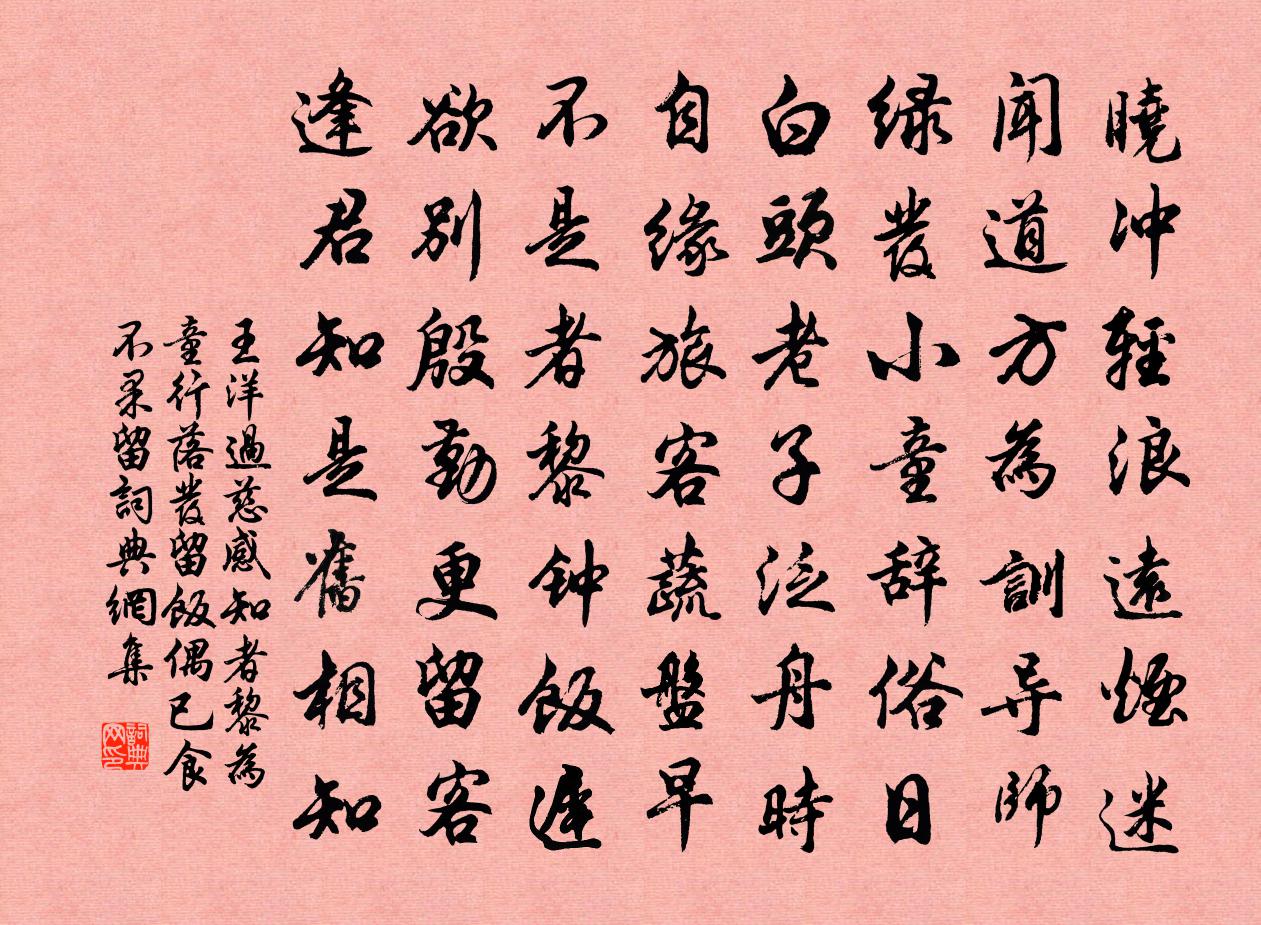 曉冲輕浪遠煙迷
聞道方為訓导師
绿發小童辞俗日
白頭老子泛舟時
自缘旅客蔬盤早
不是者黎钟飯遲
欲別殷勤更留客
逢君知是舊相知
王洋過慈感知者黎為
童行落發留飯偶已食
不果留詞典網集
詞典
网印